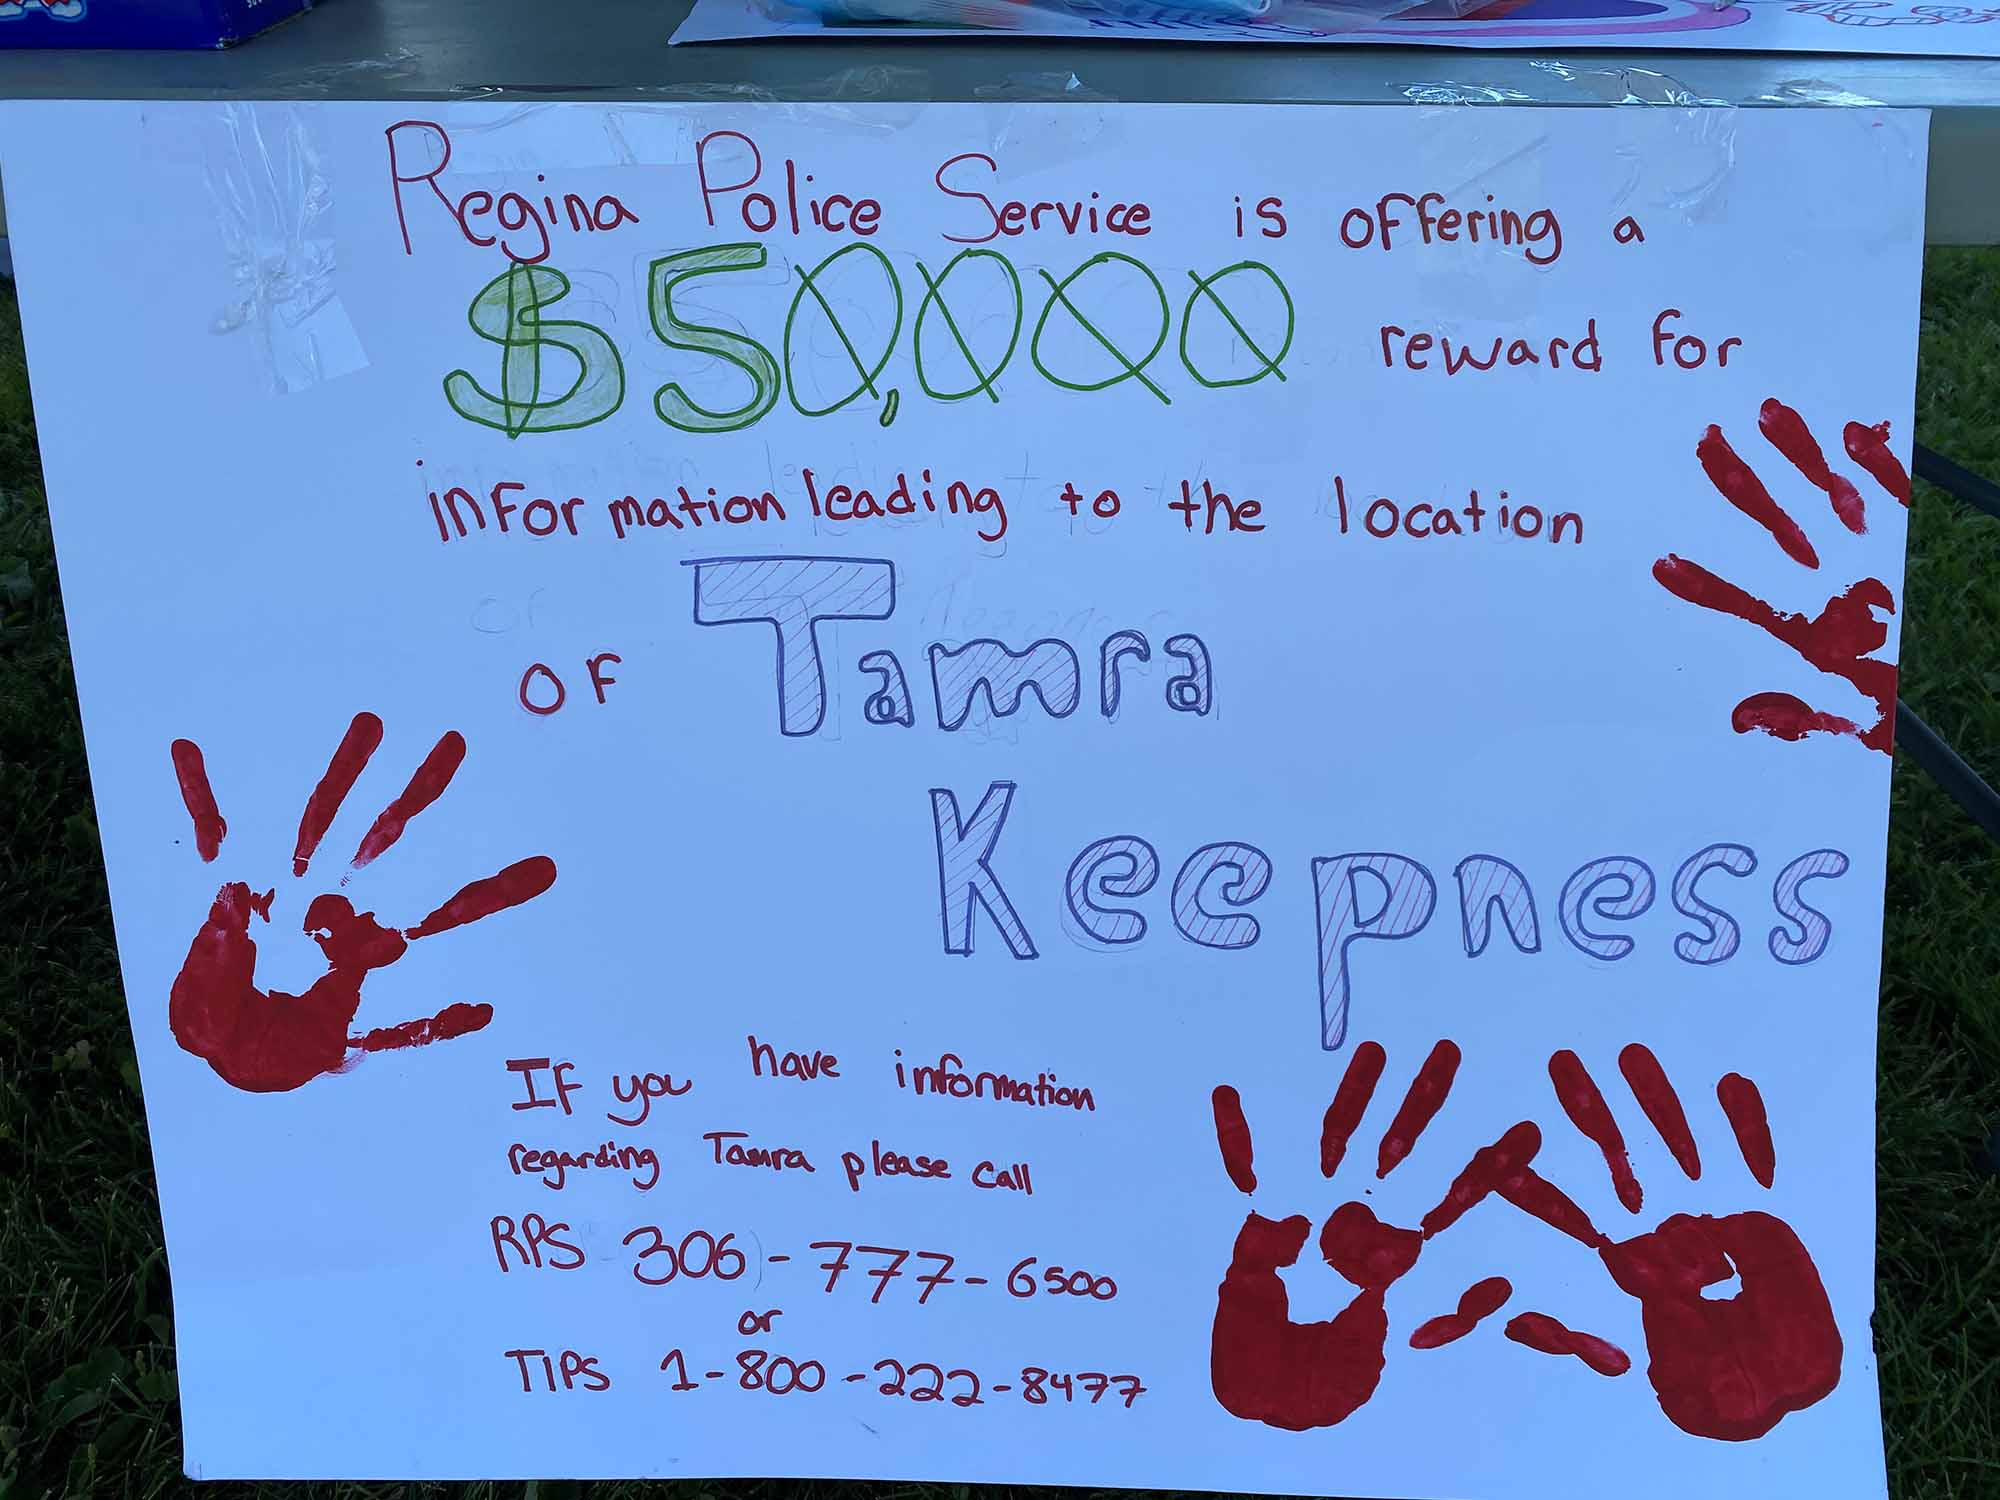 Regina Police Service is offering a
$50,000 reward for
information leading to the location
of Tamra
Keepness
If you have information
regarding Tamra please call
RPS 306-777-6500
or
TIPS 1-800-222-8477